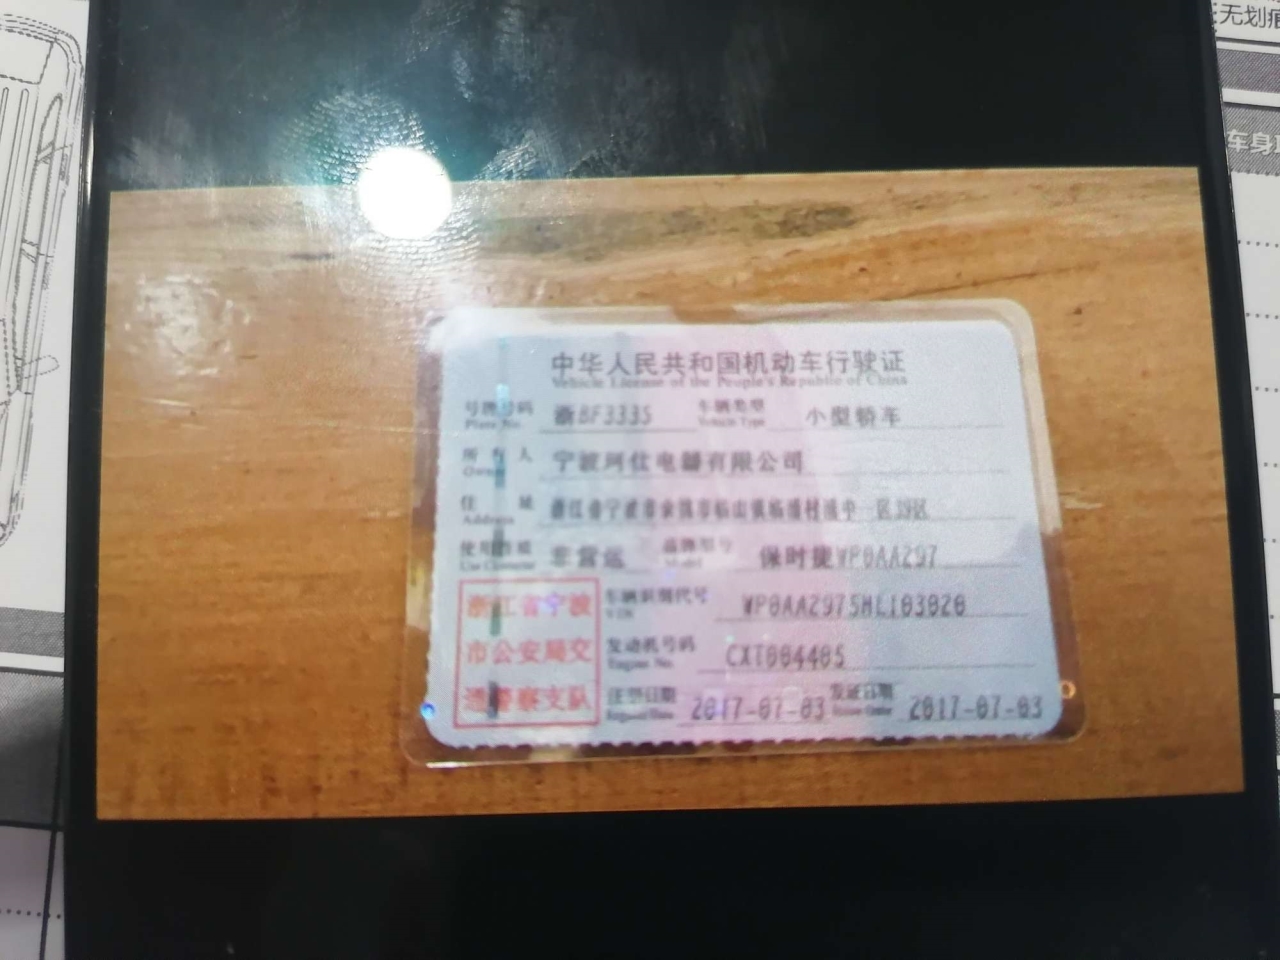 无划痕
车身
中华人民共和国机动车行驶证
Vehicle License of the People's Republic of China
号牌号码 浙BF333S 车辆类型 小型轿车
Plate No. Vehicle Type
所有人 宁波珂仕电器有限公司
Owner
住址
Address
使用性质 非营运 品牌型号 保时捷WP0AA297
Use Character Model
浙江省宁波 车辆识别代号 WP0AA2975HL103020
VIN
市公安局交 发动机号码 CXT004405
Engine No.
通警察支队 注册日期 2017-07-03 发证日期 2017-07-03
Register Date Issue Date